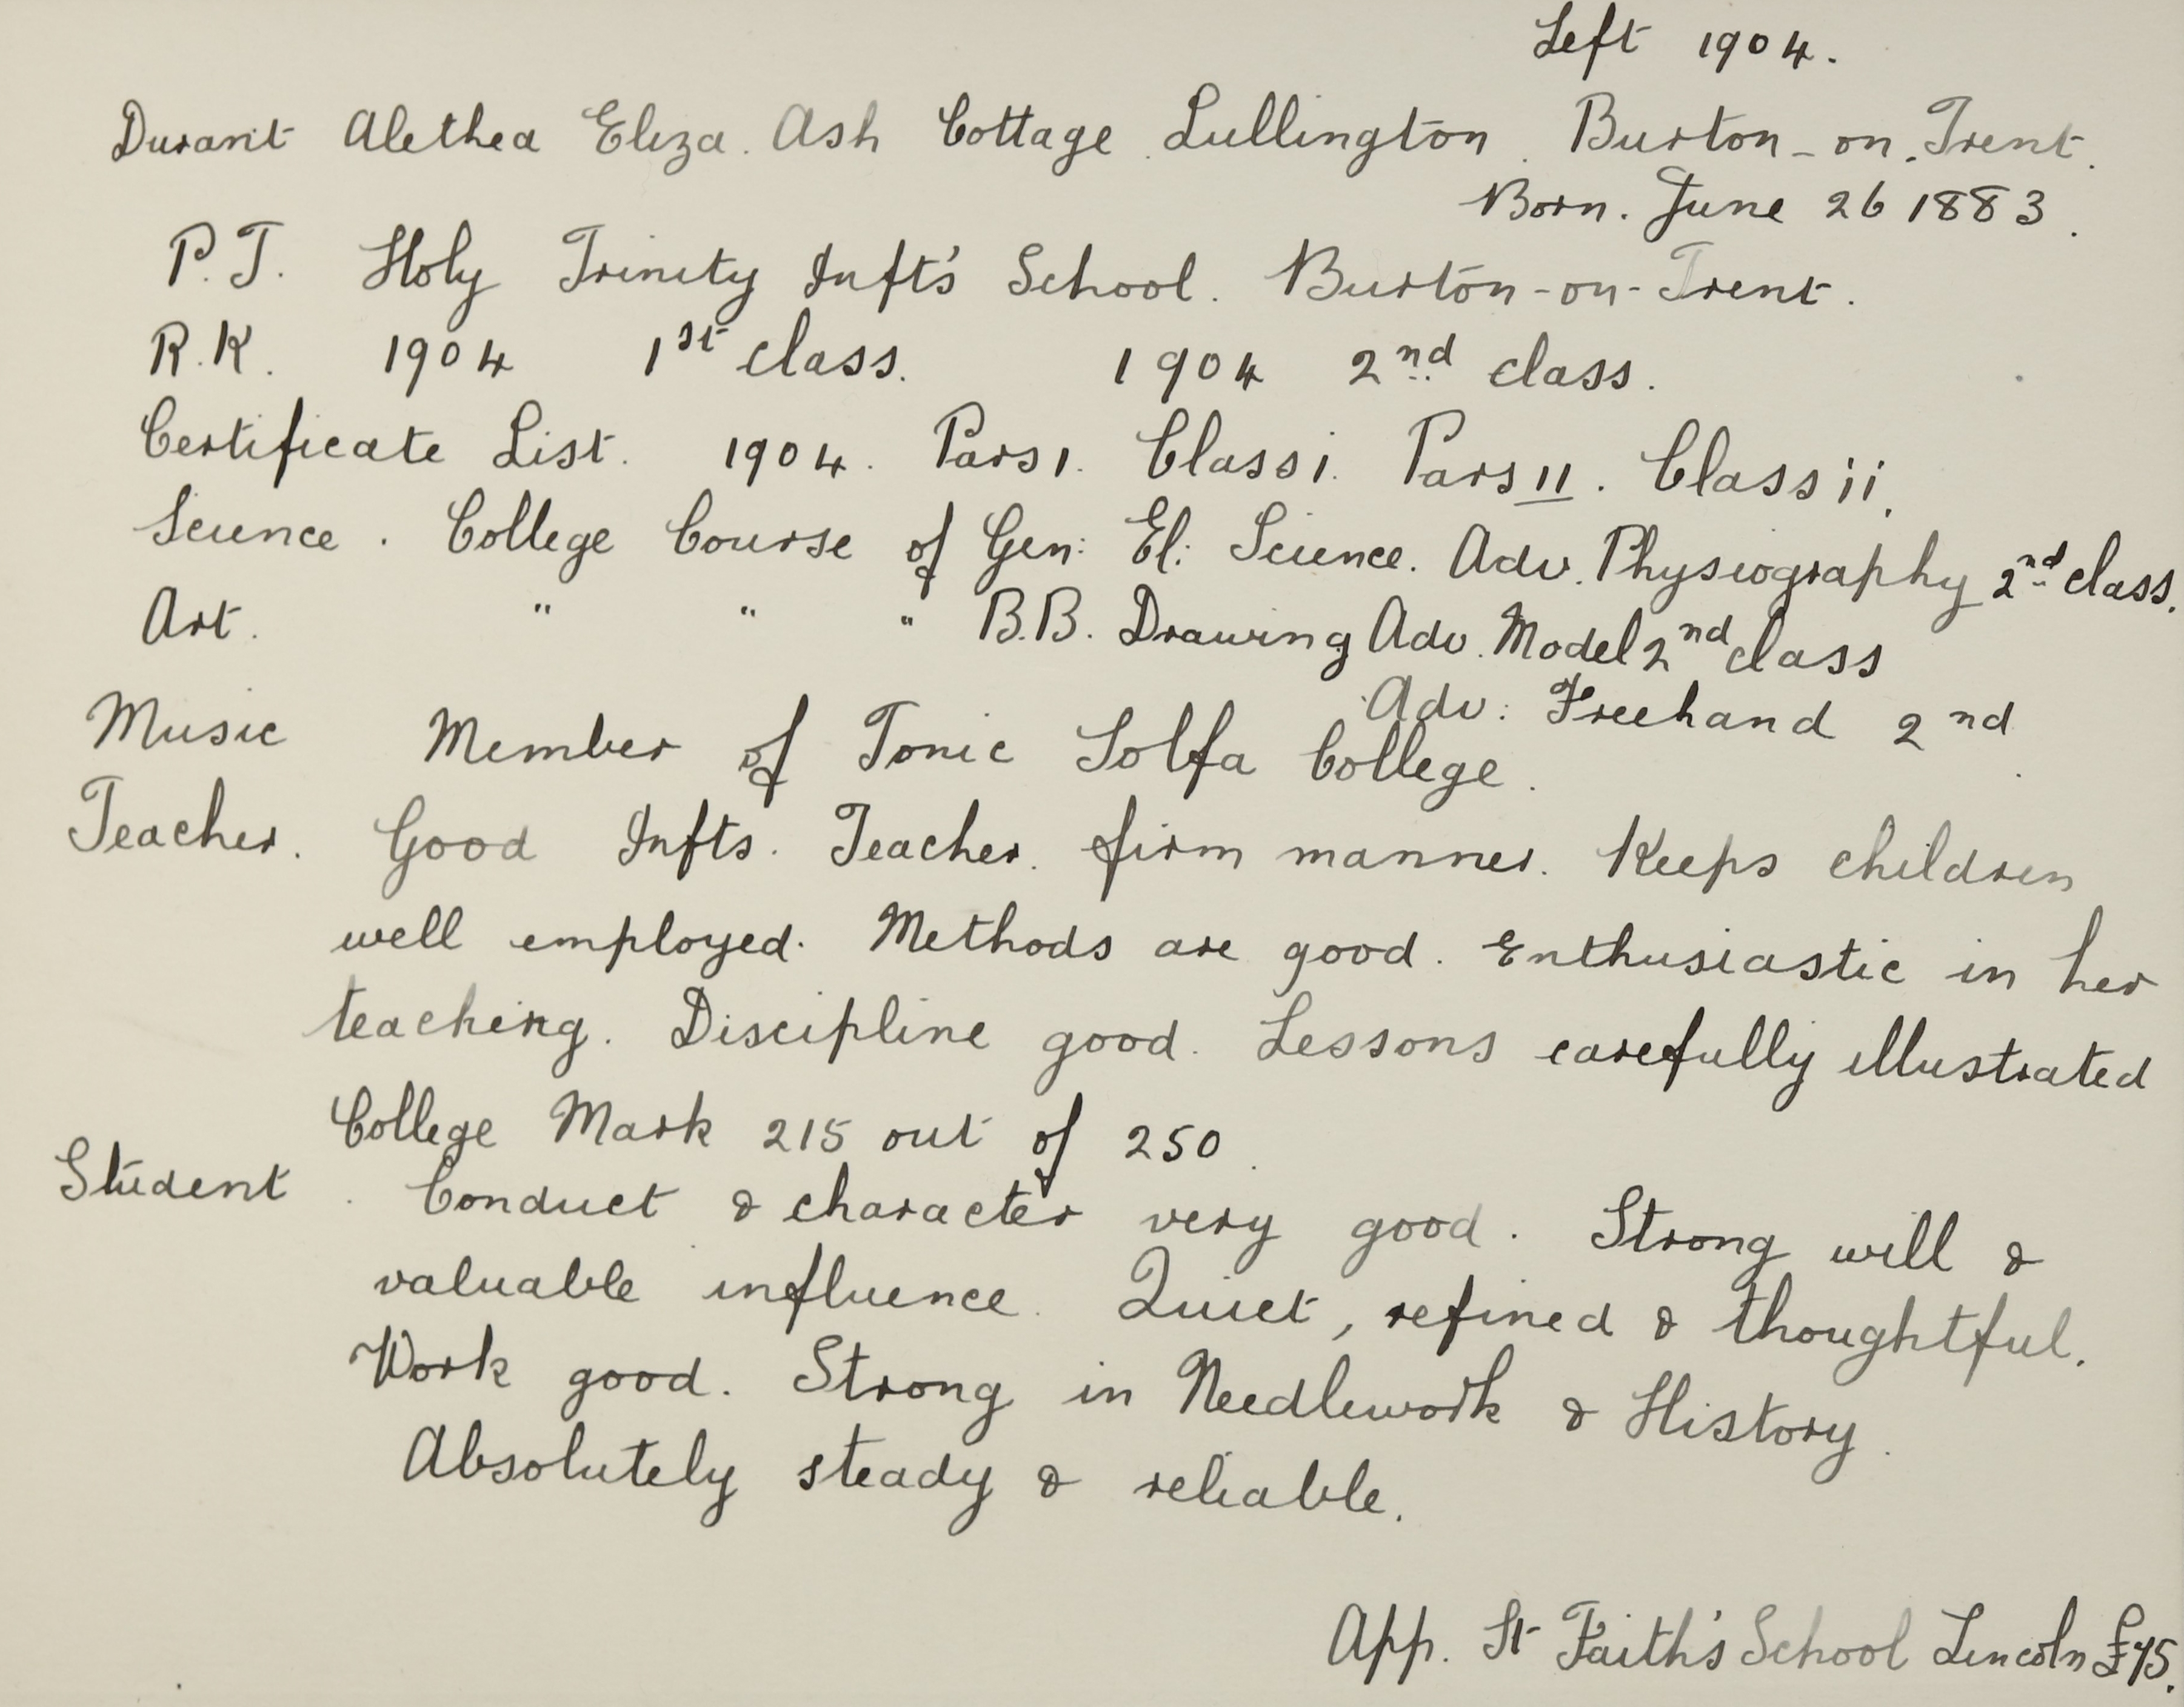 Left 1904.
Durant Alethea Eliza. Ash Cottage. Lullington. Burton-on-Trent.
Born. June 26 1883.
P.T. Holy Trinity Inft's School. Burton-on-Trent.
R.K. 1904 1st class. 1904 2nd class.
Certificate List. 1904. Pars I. Class i. Pars II. Class ii.
Science. College Course of Gen: El: Science. Adv. Physiography 2nd class.
Art. " " " B.B. Drawing Adv. Model 2nd class
Adv: Freehand 2nd.
Music Member of Tonic Solfa College.
Teacher. Good Infts. Teacher. firm manner. Keeps children
well employed. Methods are good. Enthusiastic in her
teaching. Discipline good. Lessons carefully illustrated
College Mark 215 out of 250.
Student. Conduct & character very good. Strong will &
valuable influence. Quiet, refined & thoughtful.
Work good. Strong in Needlework & History.
Absolutely steady & reliable.
App. St Faith's School Lincoln £75.